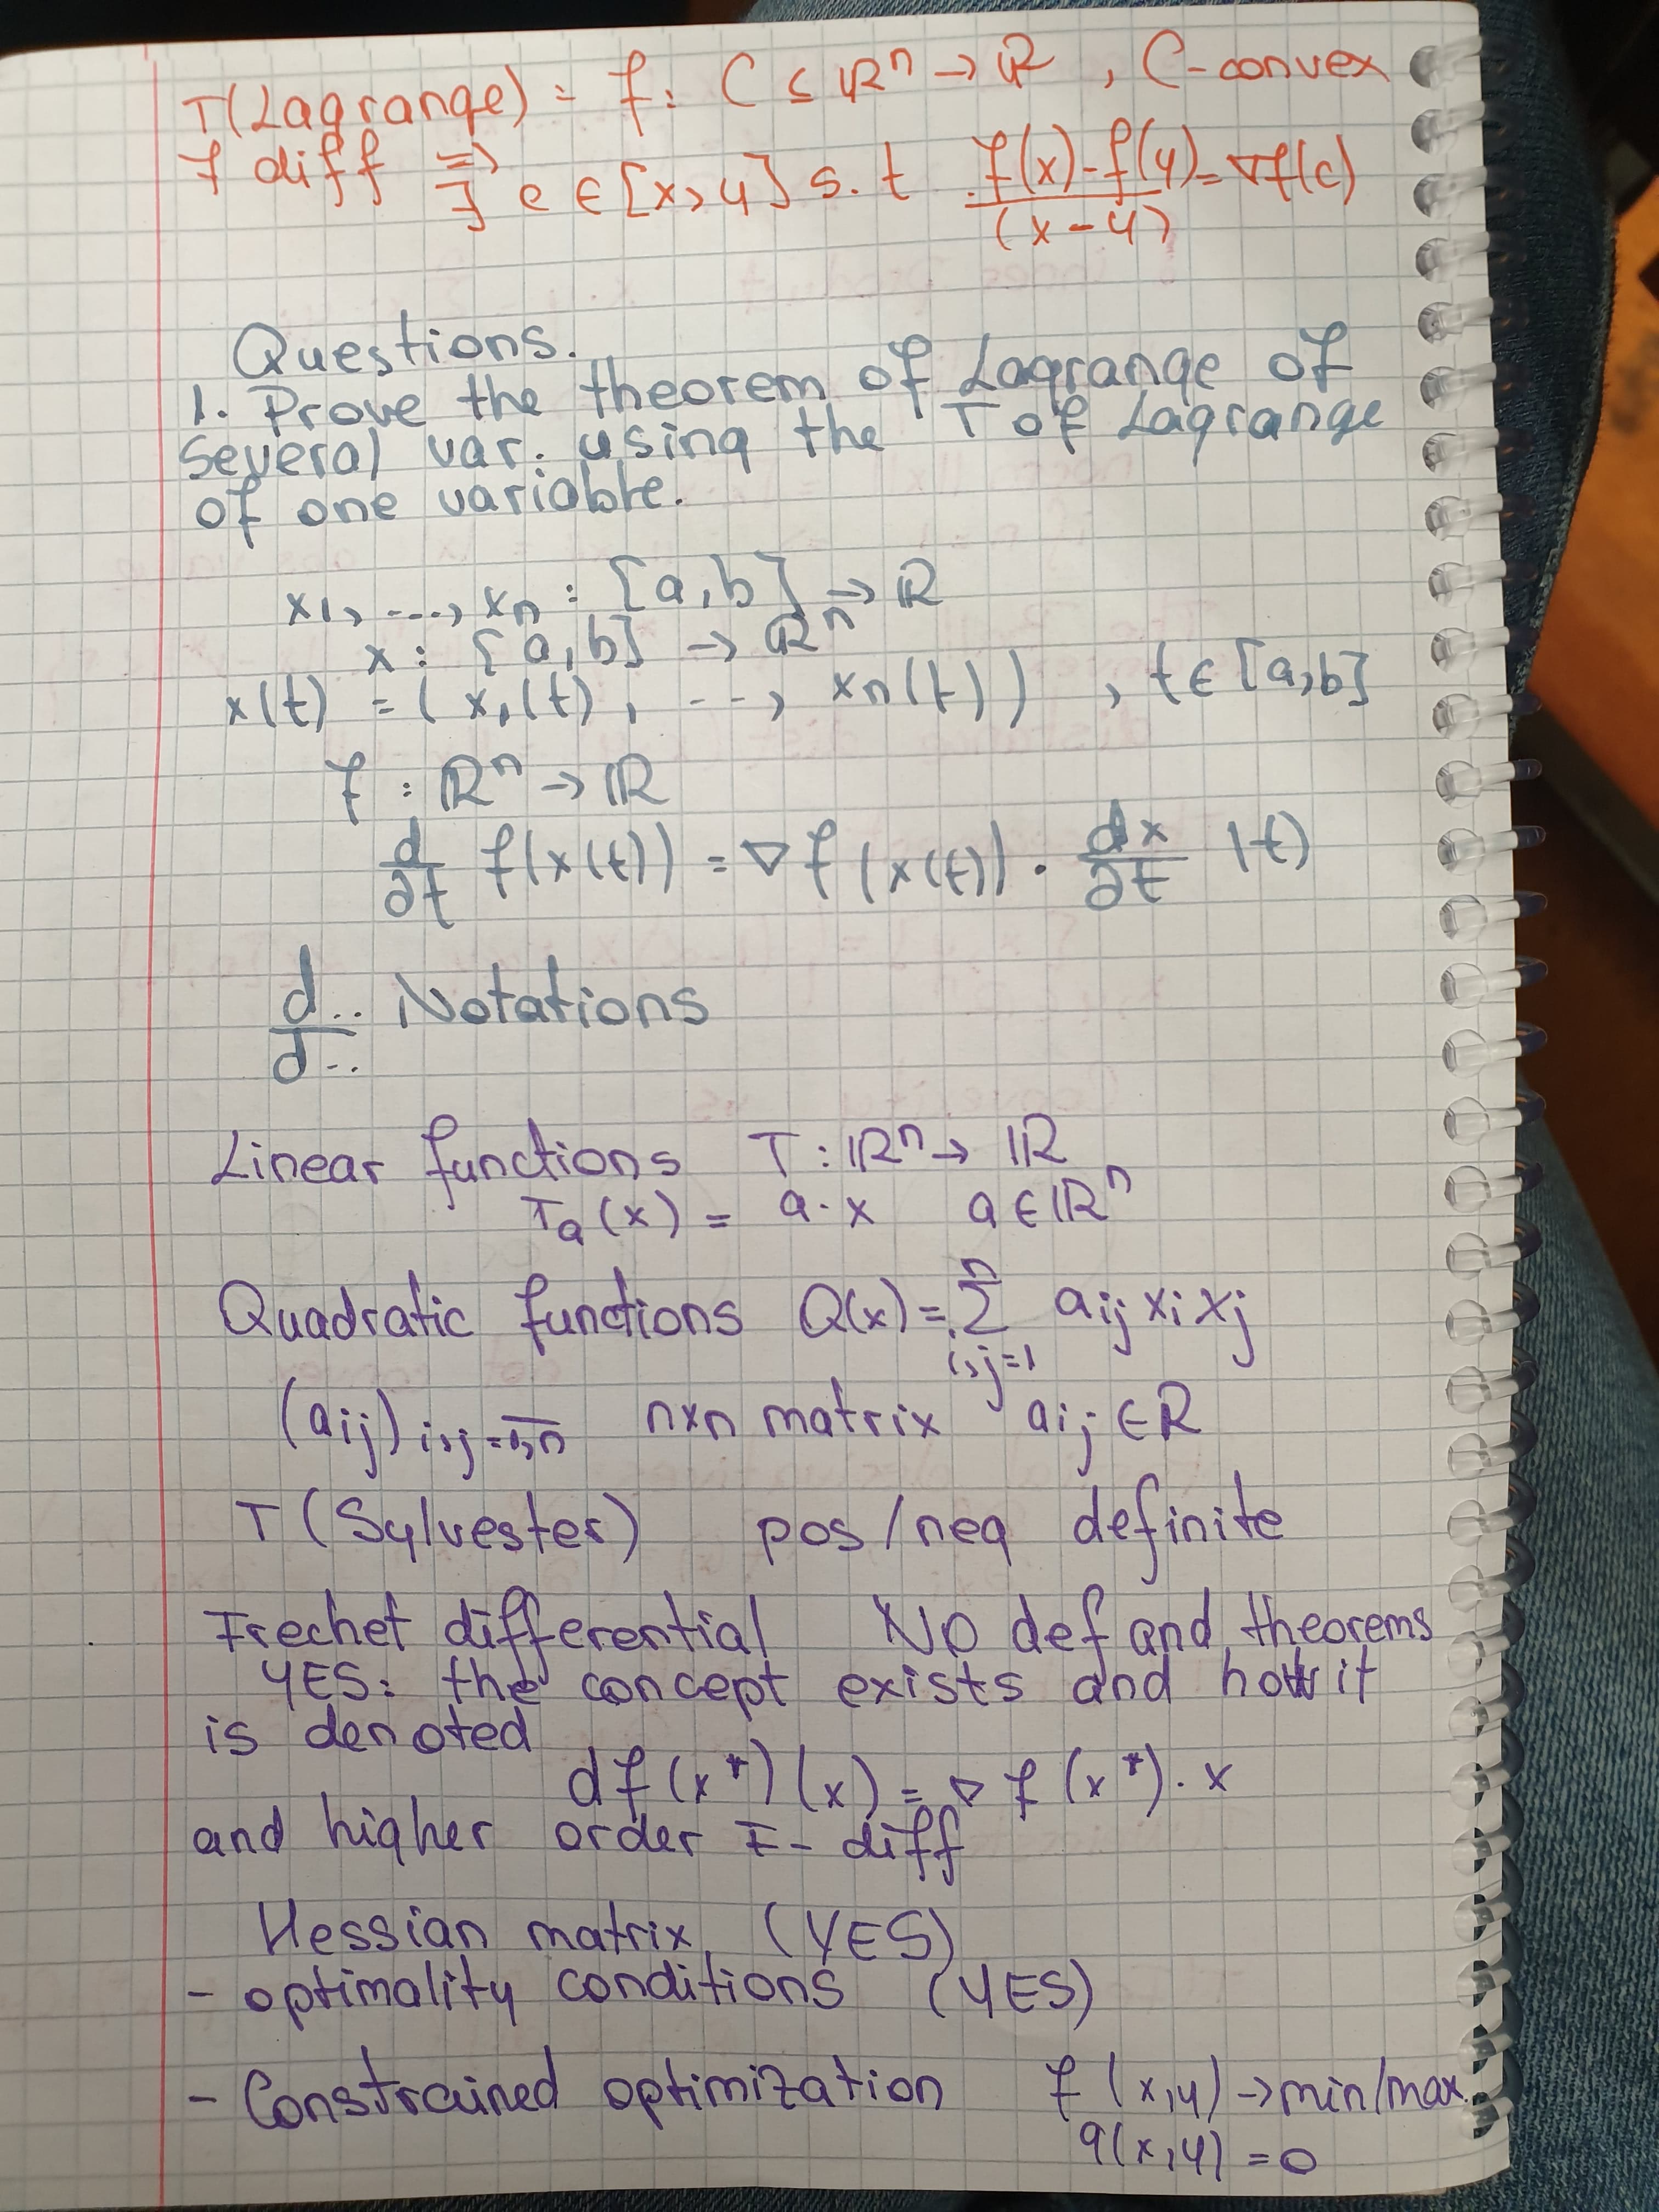 T(Lagrange) = f: C ⊆ ℝⁿ → ℝ, C-convex
f diff ⇒ ∃ c ∈ [x, y] s.t (f(x)-f(y))/(x-y) = ∇f(c)
Questions.
1. Prove the theorem of Lagrange of
several var. using the T of Lagrange
of one variable.
x₁, ..., xₙ : [a,b] → ℝ
x : [a,b] → ℝⁿ
x(t) = (x₁(t), ..., xₙ(t)), t ∈ [a,b]
f : ℝⁿ → ℝ
d/∂t f(x(t)) = ∇f(x(t)) · dx/∂t (t)
d../d.. Notations
Linear functions T : ℝⁿ → ℝ
Tₐ(x) = a·x a ∈ ℝⁿ
Quadratic functions Q(x) = Σⁿ_{i,j=1} aij xi xj
(aij) i,j=1,n̅ n×n matrix aij ∈ R
T(Sylvester) pos/neg definite
Frechet differential NO def and theorems
YES: the concept exists and how it
is denoted
df(x*)(x) = ∇f(x*)·x
and higher order F-diff
Hessian matrix (YES)
- optimality conditions (YES)
- Constrained optimization f(x,y) → min/max.
g(x,y) = 0